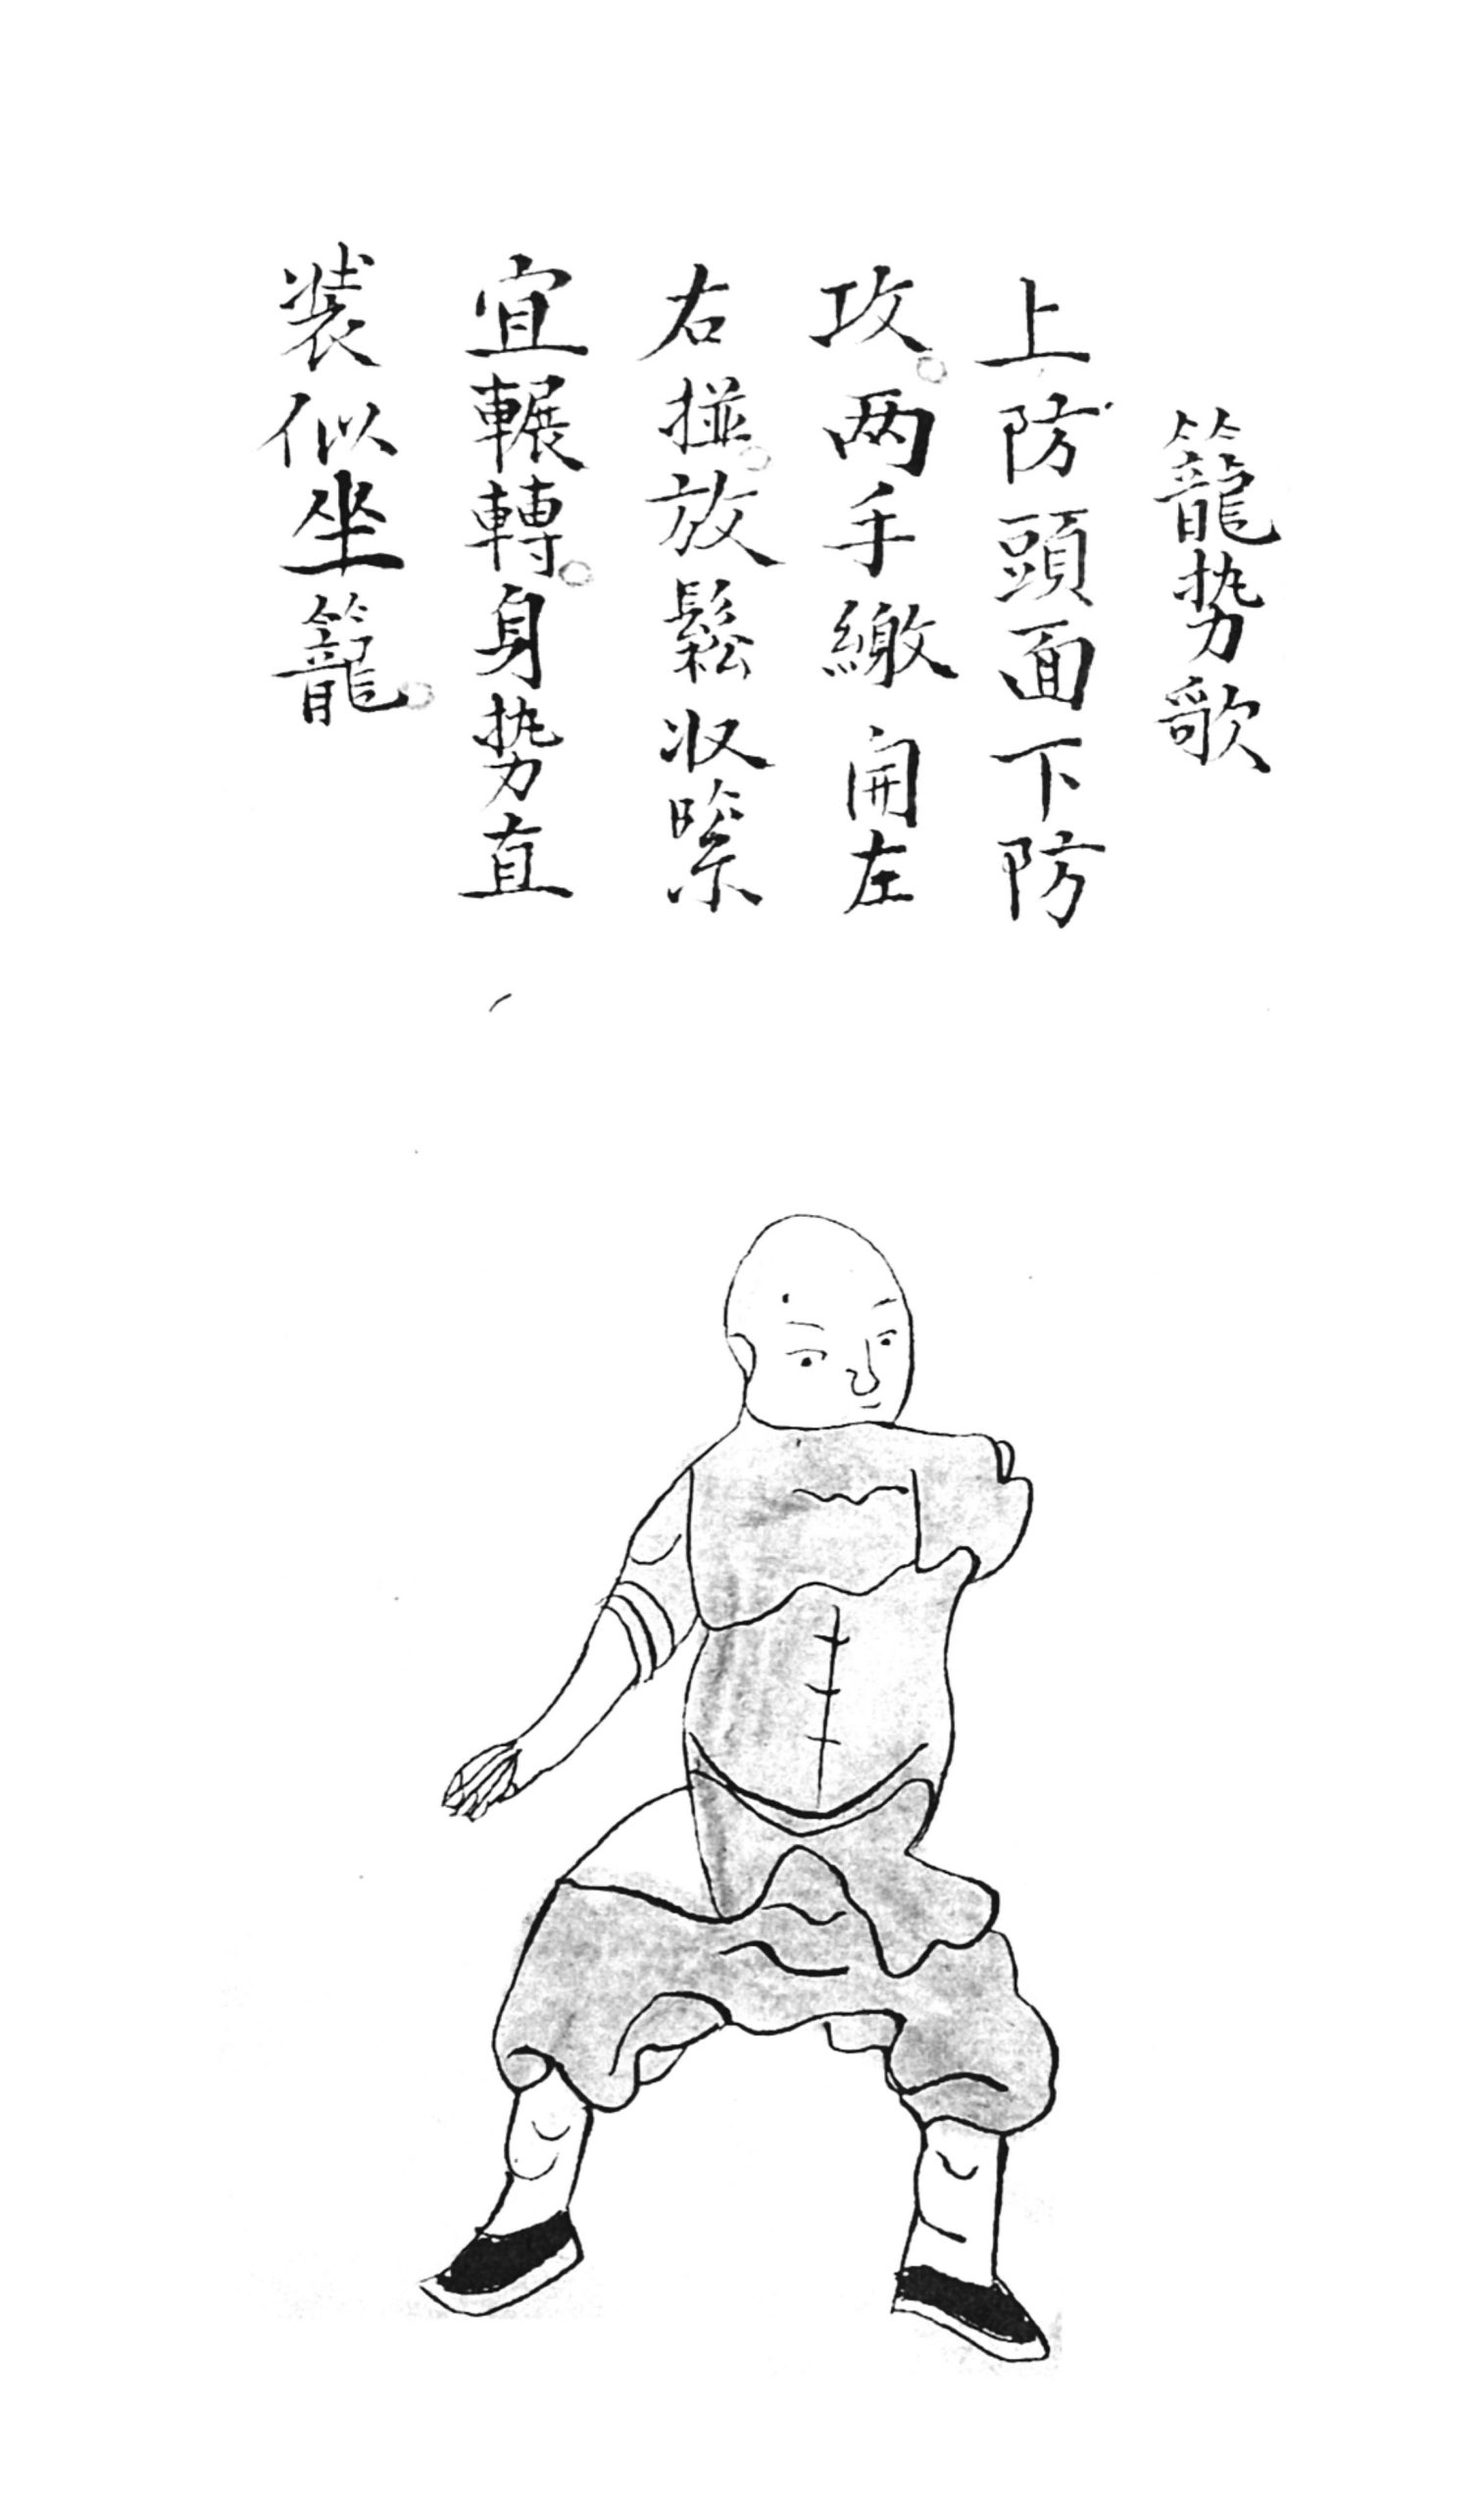 籠势歌
上防頭面下防
攻。两手繳開左
右掽。放鬆收緊
宜輾轉。身势直
装似坐籠。